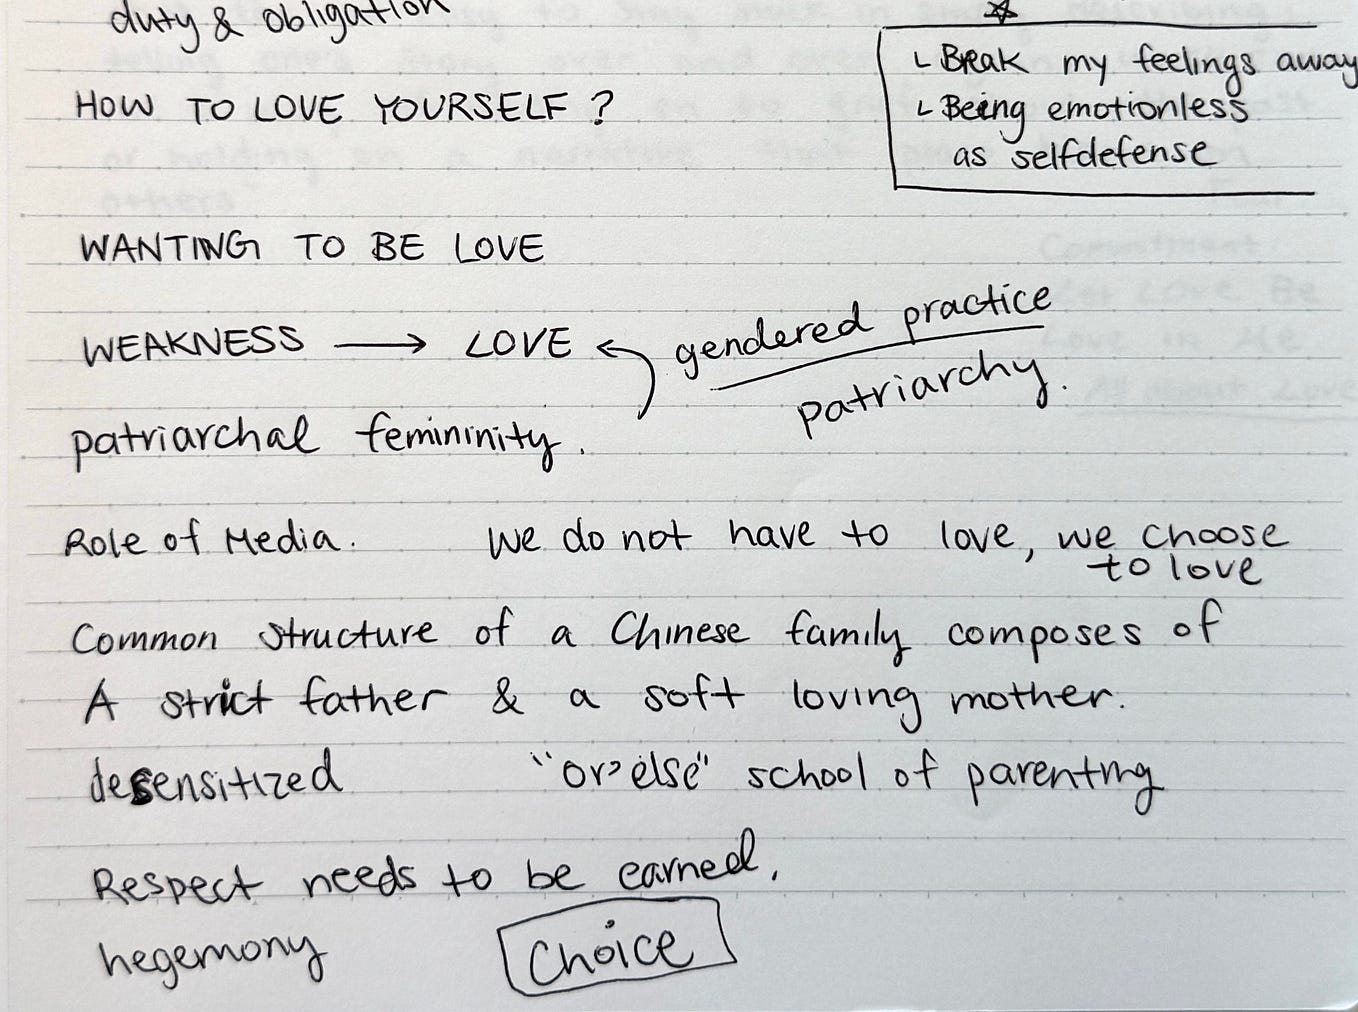 duty & obligation
↳ Break my feelings away
HOW TO LOVE YOURSELF ?
↳ Being emotionless
as selfdefense
WANTING TO BE LOVE
WEAKNESS → LOVE ← gendered practice
patriarchy.
patriarchal femininity.
Role of Media. We do not have to love, we choose
to love
Common structure of a Chinese family composes of
A strict father & a soft loving mother.
desensitized "or else" school of parenting
Respect needs to be earned.
hegemony Choice